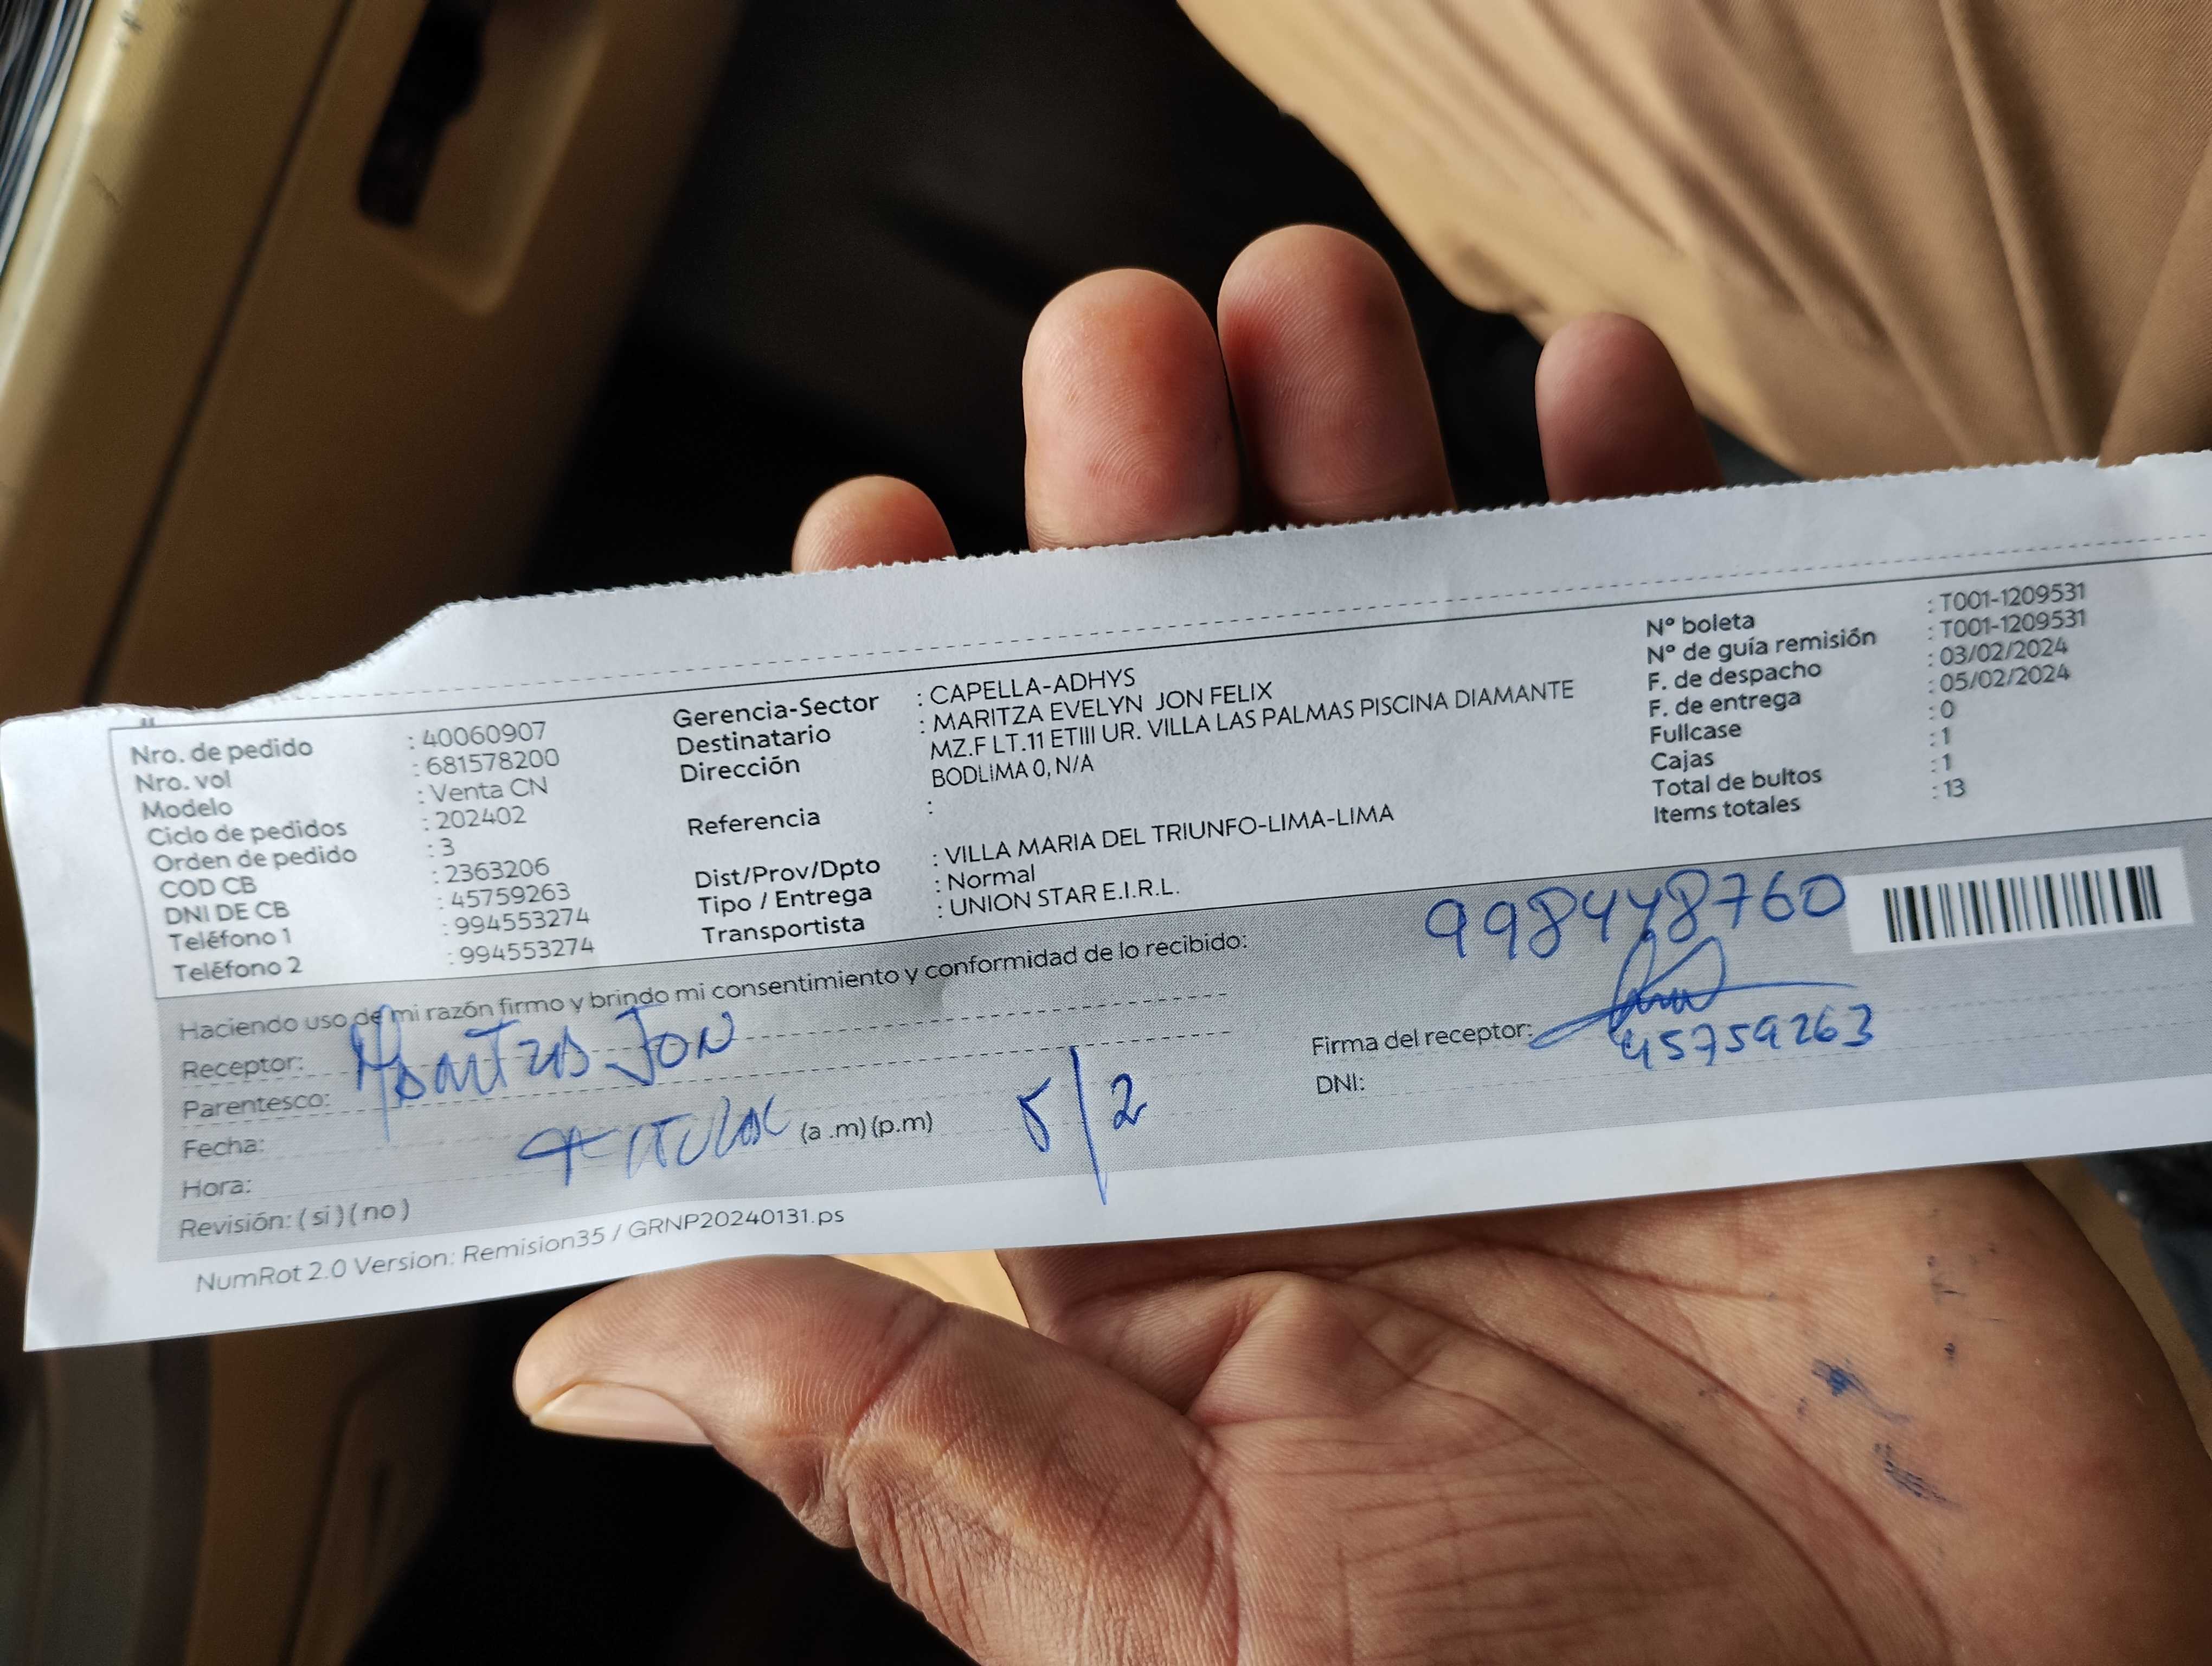 Nro. de pedido : 40060907
Nro. vol : 681578200
Modelo : Venta CN
Ciclo de pedidos : 202402
Orden de pedido : 3
COD CB : 2363206
DNI DE CB : 45759263
Teléfono 1 : 994553274
Teléfono 2 : 994553274
Gerencia-Sector : CAPELLA-ADHYS
Destinatario : MARITZA EVELYN JON FELIX
Dirección MZ.F LT.11 ETIII UR. VILLA LAS PALMAS PISCINA DIAMANTE
BODLIMA 0, N/A
Referencia :
Dist/Prov/Dpto : VILLA MARIA DEL TRIUNFO-LIMA-LIMA
Tipo / Entrega : Normal
Transportista : UNION STAR E.I.R.L.
N° boleta : T001-1209531
N° de guía remisión : T001-1209531
F. de despacho : 03/02/2024
F. de entrega : 05/02/2024
Fullcase : 0
Cajas : 1
Total de bultos : 1
Items totales : 13
Haciendo uso de mi razón firmo y brindo mi consentimiento y conformidad de lo recibido:
998448760
Receptor: Jon
Parentesco:
Fecha: titular 5/2
Hora: (a .m) (p.m)
Revisión: ( si ) ( no )
Firma del receptor:
DNI: 45759263
NumRot 2.0 Version: Remision35 / GRNP20240131.ps